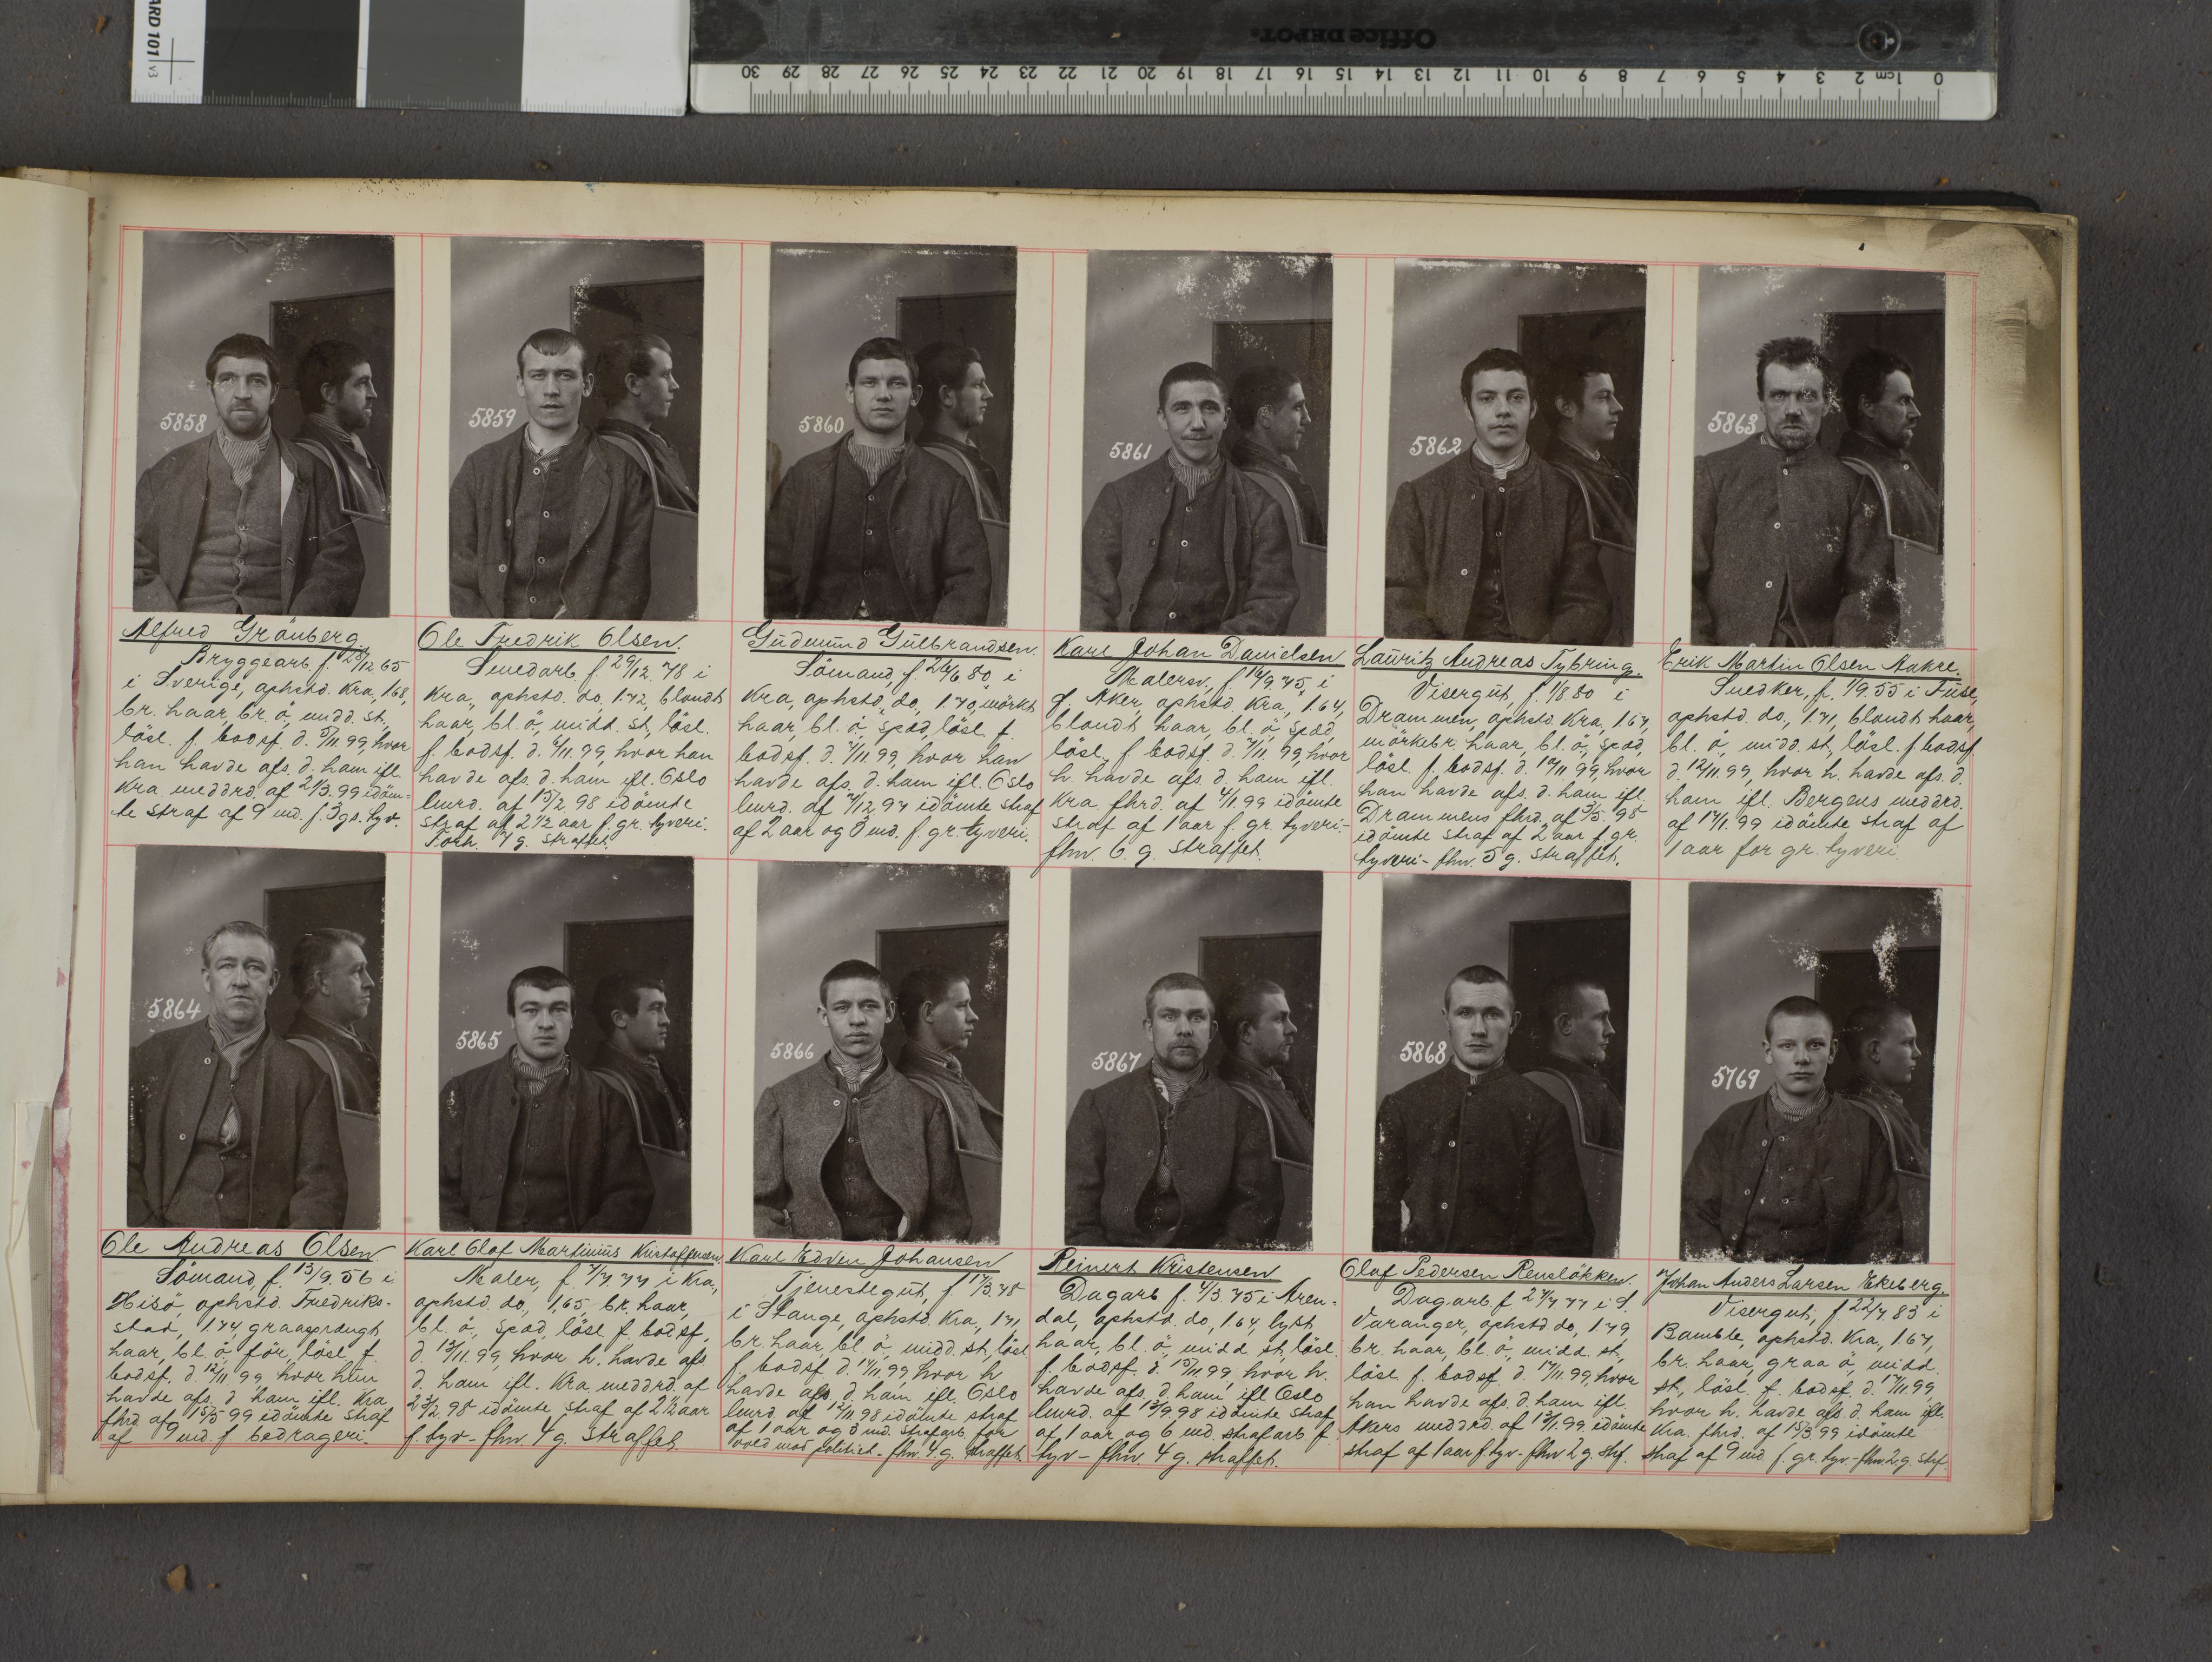 CARD 101 v3
Office DEPOT
0 1cm 2 3 4 5 6 7 8 9 10 11 12 13 14 15 16 17 18 19 20 21 22 23 24 25 26 27 28 29 30
5858
Alfred Grönberg
Bryggearb. f. 28/12 65
i Sverige, ophstd. Kra, 1.68,
br. haar, br. ö, midd. st.
lösl. f. bodsf. d. 5/11 99, hvor
han havde afs. d. ham ifl.
Kra meddrd. af 2/3. 99 idöm-
te straf af 9 md. f. 3gs. tyv.
5859
Ole Fredrik Olsen.
Smedarb. f. 29/12. 78 i
Kra, ophstd. do, 1.72, blondt
haar, bl. ö, midd. st, lösl.
f. bodsf. d. 6/11 99, hvor han
havde afs. d. ham ifl. Oslo
lmrd. af 15/2 98 idömte
straf af 2 1/2 aar f. gr. tyveri.
Forh. 7 g. straffet.
5860
Gudmund Gulbrandsen.
Sömand, f. 26/6 80, i
Kra, ophstd, do, 1.70, mörkt
haar, bl. ö, spæd, lösl. f.
bodsf. d. 7/11 99, hvor han
havde afs. d. ham ifl. Oslo
lmrd. af 7/12. 97 idömte straf
af 2 aar og 3 md. f. gr. tyveri.
5861
Karl Johan Danielsen
Malersv., f. 14/9. 75, i
V. Aker, ophstd. Kra, 1.64,
blondt haar, bl. ö, spæd,
lösl. f. bodsf. d. 7/11. 99, hvor
h. havde afs. d. ham ifl.
Kra. fhrd. af 4/1. 99 idömte
straf af 1 aar f. gr. tyveri.-
fhv. 6. g. straffet.
5862
Lauritz Andreas Tybring.
Visergut, f. 1/8 80 i
Drammen, ophstd. Kra, 1.67,
mörkebr. haar, bl. ö, spæd,
lösl. f. bodsf. d. 10/11 99, hvor
han havde afs. d. ham ifl.
Drammens fhrd. af 3/5. 98
idömte straf af 2 aar f. gr.
tyveri - fhv. 5 g. straffet.
5863
Erik Martin Olsen Aakre.
Snedker, f. 1/9. 55 i Fuse,
ophstd. do, 1.71, blondt haar,
bl. ö, midd. st, lösl. f. bodsf.
d. 12/11. 99, hvor h. havde afs. d.
ham ifl. Bergens meddrd.
af 17/1. 99 idömte straf af
1 aar for gr. tyveri.
5864
Ole Andreas Olsen
Sömand, f. 13/9. 56 i
Hisö, ophstd. Fredriks-
stad, 1.74, graasprængt
haar, bl. ö,för, lösl. f.
bodsf. d. 12/11 99 hvor han
havde afs. d. ham ifl. Kra
fhrd. af 15/5 99 idömte straf
af 9 md. f. bedrageri.
5865
Karl Olaf Martinius Kristoffersen.
Maler, f. 7/7. 77 i Kra,
ophstd. do, 1,65, br. haar,
bl. ö, spæd, lösl. f. bodsf.
d. 13/11. 99, hvor h. havde afs.
d. ham ifl. Kra meddrd. af
23/2. 98 idömte straf af 2 1/2 aar
f. tyv - fhv. 4 g. straffet
5866
Karl Edvin Johansen
Tjenestegut, f. 17/3. 78
i Stange, ophstd. Kra, 1.71,
br. haar, bl. ö, midd. st, lösl
f. bodsf. d. 14/11. 99, hvor h
havde afs. d. ham ifl. Oslo
lmrd. af 12/11 98 idömte straf
af 1 aar og 3 md. strafarb. for
vold mod politiet - fhv. 4. g. straffet.
5867
Reinert Kristensen
Dagarb f. 4/3. 75 i Aren-
dal, ophstd. do, 1.64, lyst
haar, bl. ö, midd. st, lösl.
f. bodsf. d. 15/11. 99, hvor h.
havde afs. d. ham ifl. Oslo
lmrd. af 13/9. 98 idömte straf
af 1 aar og 6 md. strafarb. f.
tyv - fhv. 4 g. straffet.
5868
Olaf Pedersen Rensløkken.
Dagarb. f. 27/7 77 i S.
Varanger, ophstd do, 1.79,
br. haar, bl. ö, midd. st,
lösl. f. bodsf. d. 17/11. 99, hvor
han havde afs. d. ham ifl.
Akers meddrd. af 13/1. 99. idömte
straf af 1 aar f. tyv - fhv 2 g. strf.
5769
Johan Anders Larsen Ekeberg.
Visergut, f. 22/7 83 i
Bamble, ophstd. Kra, 1.67,
br. haar, graa ö, midd
st, lösl. f. bodsf. d. 17/11. 99
hvor h. havde afs. d. ham ifl.
Kra. fhrd. af 15/3 99 idömte
straf af 9 md. f. gr. tyv - fhv. 2. g. strf.